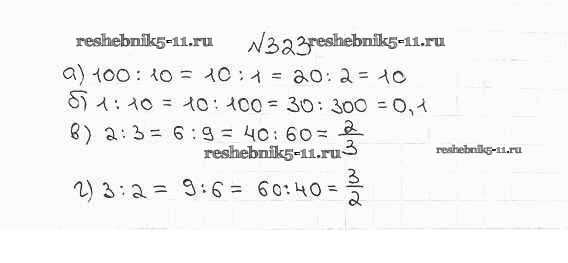 reshebnik5-11.ru №323 reshebnik5-11.ru
а) 100 : 10 = 10 : 1 = 20 : 2 = 10
б) 1 : 10 = 10 : 100 = 30 : 300 = 0,1
в) 2 : 3 = 6 : 9 = 40 : 60 = 2/3
reshebnik5-11.ru reshebnik5-11.ru
г) 3 : 2 = 9 : 6 = 60 : 40 = 3/2